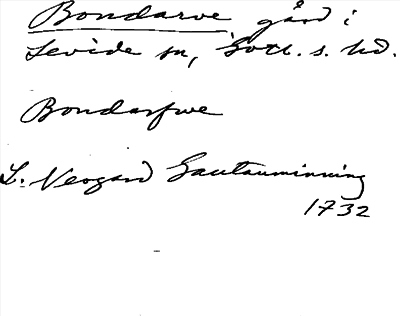 Bondarve gård i
Levide sn, Gotl. s. hd.
Bondarfwe
L. Neogard Gautauminning
1732